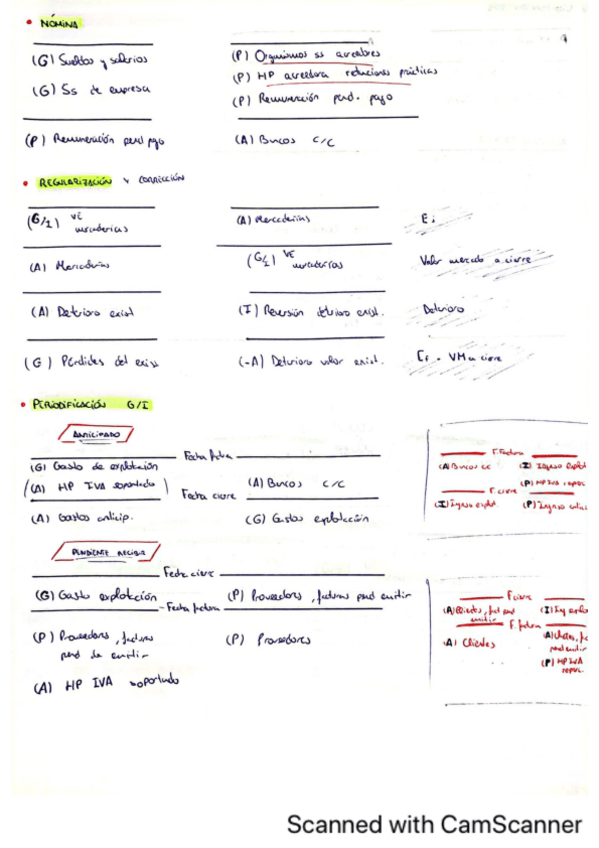 • NÓMINA
(G) Sueldos y salarios
(P) Organismos ss acreedores
(P) HP acreedora retenciones prácticas
(G) Ss de empresa
(P) Remuneración pend. pago
(P) Remuneración pend pago
(A) Bancos c/c
• REGULARIZACIÓN Y CORRECCIÓN
(G/I) VE mercaderías
(A) Mercaderías
Ei
(A) Mercaderías
(G/I) VE mercaderías
Valor mercado a cierre
(A) Deterioro exist
(I) Reversión deterioro exist.
Deterioro
(G) Pérdidas del exist
(-A) Deterioro valor exist.
Ef - VM a cierre
• PERIODIFICACIÓN G/I
ANTICIPADO
Fecha factura
(G) Gasto de explotación
(A) HP IVA soportado
(A) Bancos c/c
Fecha cierre
(A) Gastos anticip.
(G) Gastos explotación
F. factura
(A) Bancos cc
(I) Ingreso explot
(P) HP IVA reperc
F. cierre
(I) Ingreso explot
(P) Ingreso
PENDIENTE RECIBIR
Fecha cierre
(G) Gasto explotación
(P) Proveedores, facturas pend emitir
Fecha factura
(P) Proveedores, facturas pend de emitir
(P) Proveedores
(A) HP IVA soportado
F cierre
(A) Clientes, fact pend emitir
(I) Ing
F. factura
(A) Clientes
(A) Clientes, fc pend emitir
(P) HP IVA reperc.
Scanned with CamScanner